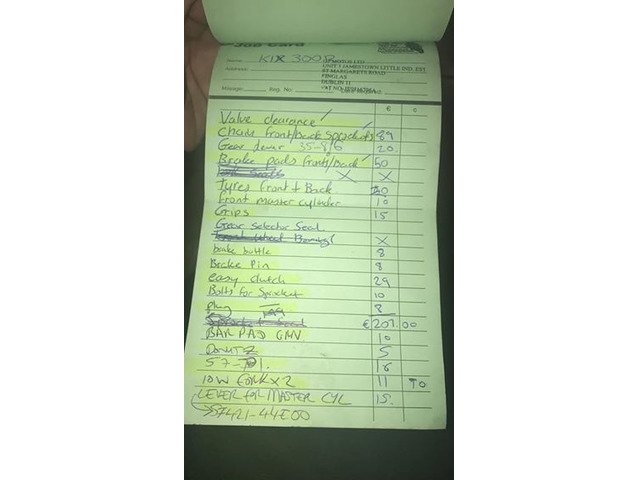 Job Card
Name: KLX 300R
GP MOTOS LTD
Address: UNIT 1 JAMESTOWN LITTLE IND. EST.
ST MARGARETS ROAD
FINGLAS
DUBLIN 11
Mileage: Reg. No: VAT NO.
€ c
Valve clearance
Chain front/back sprockets 89
Gear Lever 35- 20
Brake pads front/back 50
X X
Tyres front + Back
front master cylinder 10
Grips 15
Gear selector Seal
X
brake bottle 8
Brake Pin 8
easy clutch 29
Bolts for Sprocket 10
plug 8
€ 207.00
BAR PAD 10
5
57-
10W FORK X 2 11 70
LEVER FOR MASTER CYL 15.
57421-44E00